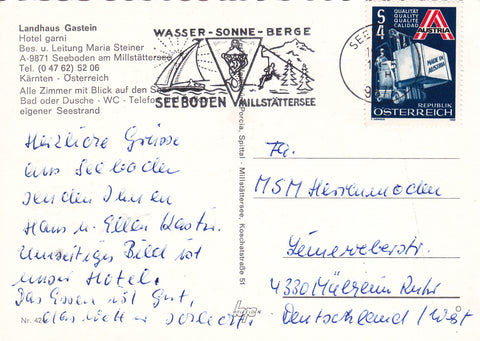 Landhaus Gastein
Hotel garni
Bes. u. Leitung Maria Steiner
A-9871 Seeboden am Millstättersee
Tel. (0 47 62) 52 06
Kärnten - Österreich
Alle Zimmer mit Blick auf den See
Bad oder Dusche - WC - Telefon
eigener Seestrand
WASSER-SONNE-BERGE
SEEBODEN MILLSTÄTTERSEE
SEE
S4
QUALITÄT
QUALITY
QUALITE
CALIDAD
AUSTRIA
MADE IN AUSTRIA
REPUBLIK
ÖSTERREICH
Herzliche Grüsse
aus Seeboden
senden Ihnen
Hans u. Ellen
Umseitiges Bild ist
unser Hotel.
Das Essen ist gut,
das Wetter schlecht.
Porcia, Spittal - Millstättersee, Koschatstraße 51
Fa.
MSM Herrenmoden
Leineweberstr.
4330 Mülheim Ruhr
Deutschland / West
Nr. 42